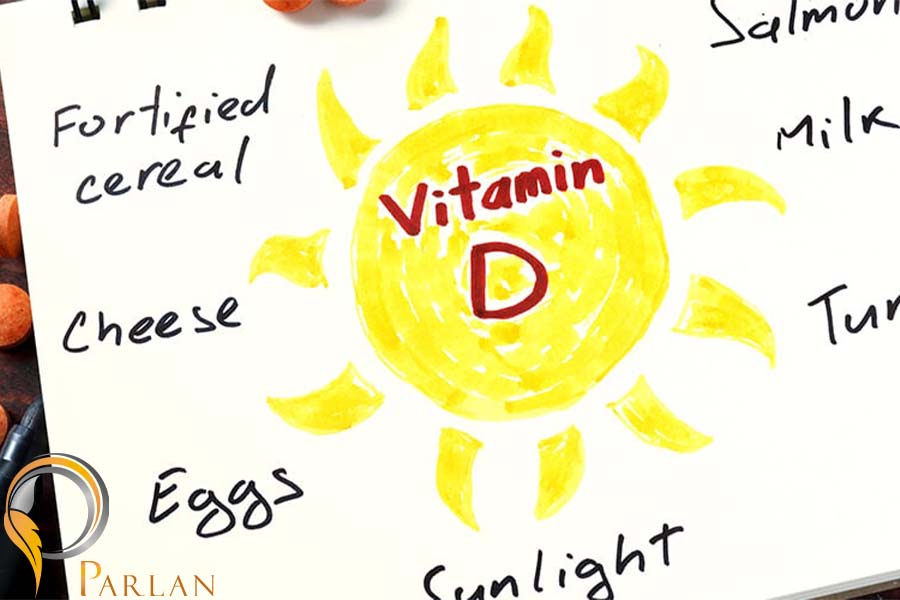 Salmon
Fortified
cereal
Milk
Vitamin
D
Cheese
Eggs
Sunlight
PARLAN